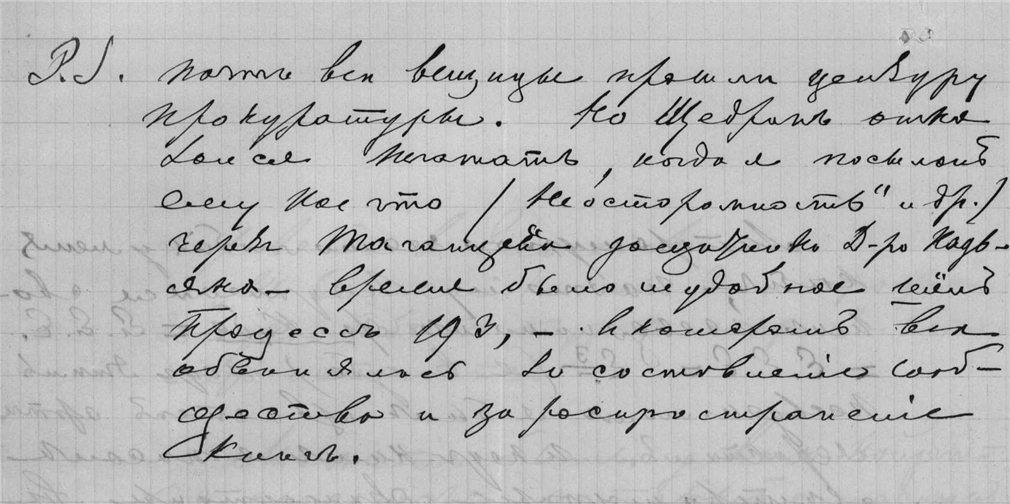 P.S. почти все вещицы прошли цензуру
прокуратуры. Но Щедринъ отка
зался печатать, когда я посылалъ
ему кое что / "Неосторожность" и др. /
черезъ Таганцева защитника Д-ра Кадь-
яна — время было неудобное шёлъ
Процессъ 193, — въ которомъ все
обвинялось въ составленіе сооб-
щества и за распространеніе
книгъ.